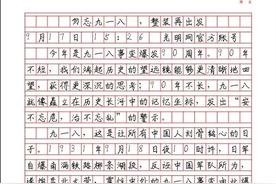 勿忘九一八，整装再出发
9月17日 15:26 光明网官方账号
今年是九一八事变爆发90周年。90年
不短，我们端起历史的望远镜能够更清晰地回
望，获得更深沉的思考；90年不长，九一八
就像矗立在历史长河中的记忆坐标，发出“安
不忘危，治不忘乱”的警示。
九一八，这是让所有中国人刻骨铭心的日
子。1931年9月18日夜10时许，日军
自爆南满铁路柳条湖段，反诬中国军队所为，